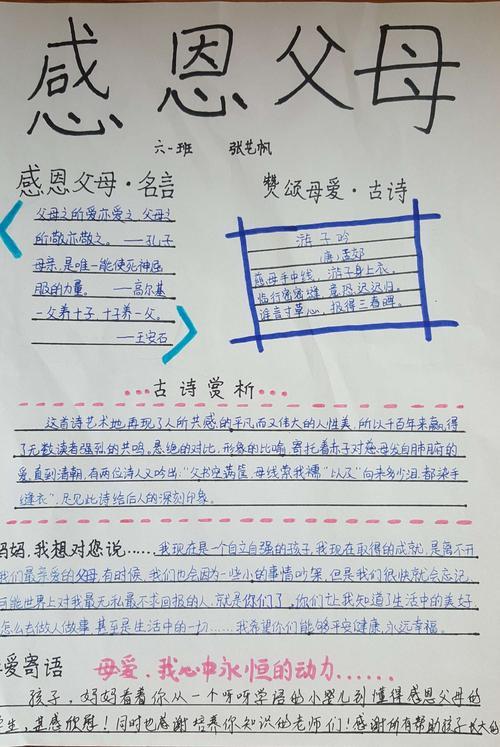 感恩父母
六一班 张艺帆
感恩父母·名言
父母之所爱亦爱之 父母之
所敬亦敬之。——孔子
母亲,是唯一能使死神屈
服的力量。——高尔基
一父养十子,十子养一父。
——王安石
赞颂母爱·古诗
游子吟
唐·孟郊
慈母手中线,游子身上衣。
临行密密缝,意恐迟迟归。
谁言寸草心,报得三春晖。
古诗赏析
这首诗艺术地再现了人所共感的平凡而又伟大的人性美,所以千百年来赢得
了无数读者强烈的共鸣。悬绝的对比,形象的比喻,寄托着赤子对慈母发自肺腑的
爱,直到清朝,有两位诗人又吟出:"父书空满筐,母线萦我襦"以及"向来多少泪,都染手
缝衣",足见此诗给后人的深刻印象。
妈妈,我想对您说......我现在是一个自立自强的孩子,我现在取得的成就,是离不开
我们最亲爱的父母,有时候,我们也会因为一些小的事情吵架,但是我们很快就会忘记,
可能世界上对我最无私最不求回报的人,就是你们了,你们让我知道了生活中的美好,
怎么去做人做事,甚至是生活中的一切......我希望你们能够平安健康,永远幸福。
爱寄语
母爱,我心中永恒的动力......
孩子,妈妈看着你从一个呀呀学语的小婴儿到懂得感恩父母的
学生,甚感欣慰!同时也感谢培养你知识的老师们!感谢所有帮助孩子长大的